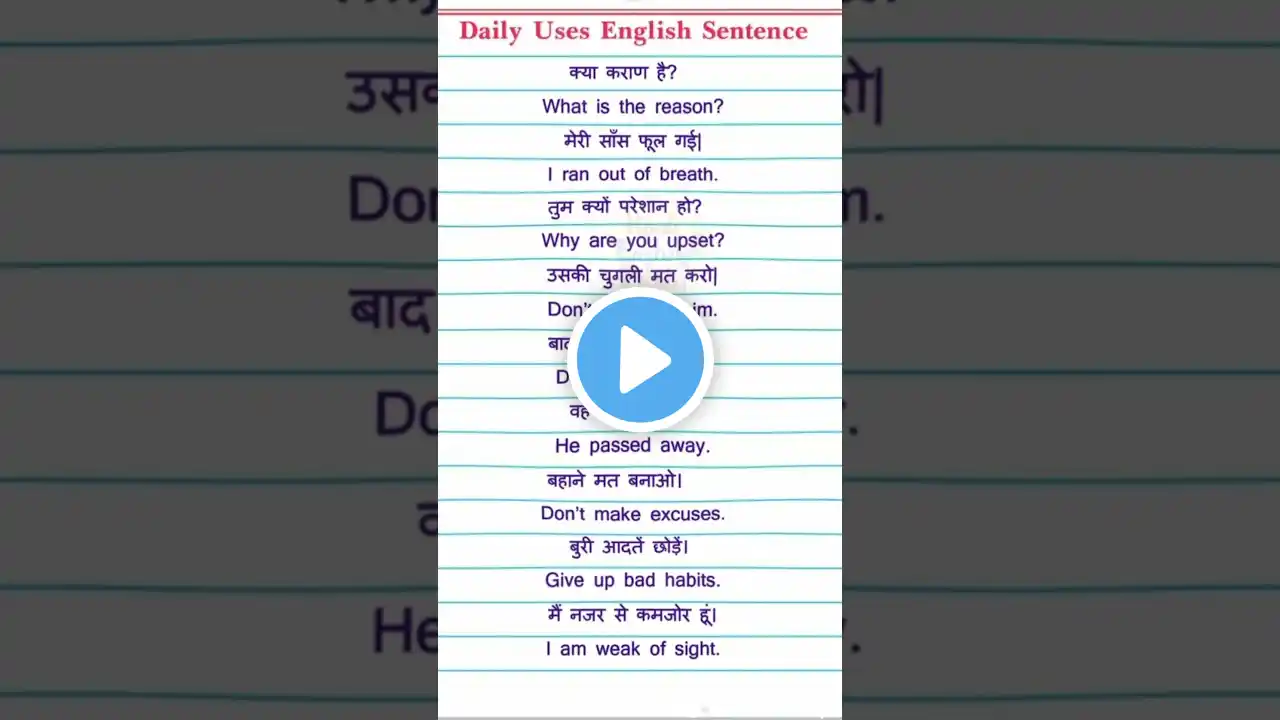 Daily Uses English Sentence
क्या कराण है?
What is the reason?
मेरी साँस फूल गई|
I ran out of breath.
तुम क्यों परेशान हो?
Why are you upset?
उसकी चुगली मत करो|
Don't
He passed away.
बहाने मत बनाओ।
Don't make excuses.
बुरी आदतें छोड़ें।
Give up bad habits.
मैं नजर से कमजोर हूं।
I am weak of sight.